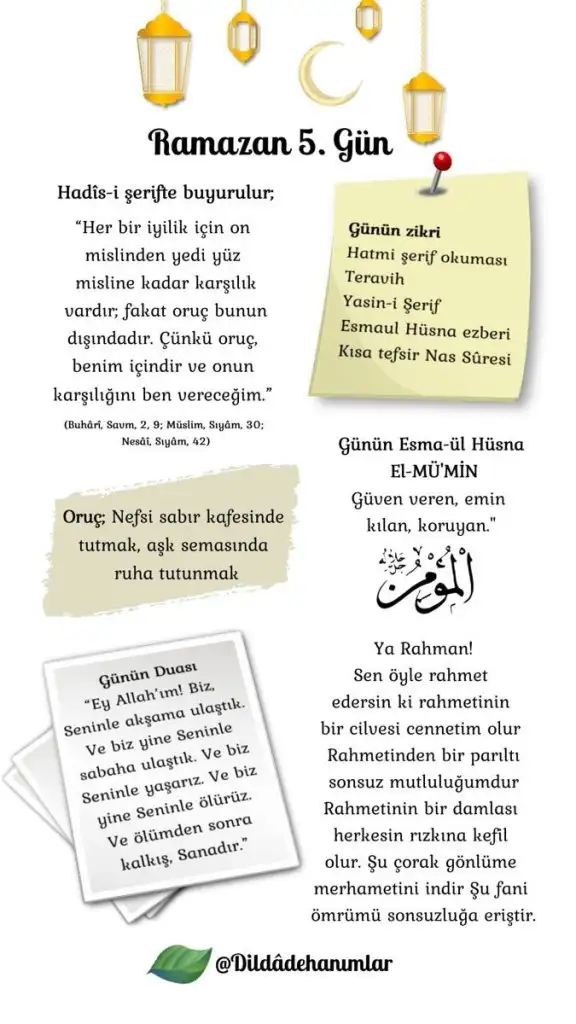 Ramazan 5. Gün
Hadîs-i şerifte buyurulur;
“Her bir iyilik için on
mislinden yedi yüz
misline kadar karşılık
vardır; fakat oruç bunun
dışındadır. Çünkü oruç,
benim içindir ve onun
karşılığını ben vereceğim.”
(Buhârî, Savm, 2, 9; Müslim, Sıyâm, 30;
Nesâî, Sıyâm, 42)
Günün zikri
Hatmi şerif okuması
Teravih
Yasin-i Şerif
Esmaul Hüsna ezberi
Kısa tefsir Nas Sûresi
Oruç; Nefsi sabır kafesinde
tutmak, aşk semasında
ruha tutunmak
Günün Esma-ül Hüsna
El-MÜ'MİN
Güven veren, emin
kılan, koruyan."
الْمُؤْمِنُ جل جلاله
Günün Duası
“Ey Allah’ım! Biz,
Seninle akşama ulaştık.
Ve biz yine Seninle
sabaha ulaştık. Ve biz
Seninle yaşarız. Ve biz
yine Seninle ölürüz.
Ve ölümden sonra
kalkış, Sanadır.”
Ya Rahman!
Sen öyle rahmet
edersin ki rahmetinin
bir cilvesi cennetim olur
Rahmetinden bir parıltı
sonsuz mutluluğumdur
Rahmetinin bir damlası
herkesin rızkına kefil
olur. Şu çorak gönlüme
merhametini indir Şu fani
ömrümü sonsuzluğa eriştir.
@Dildâdehanımlar